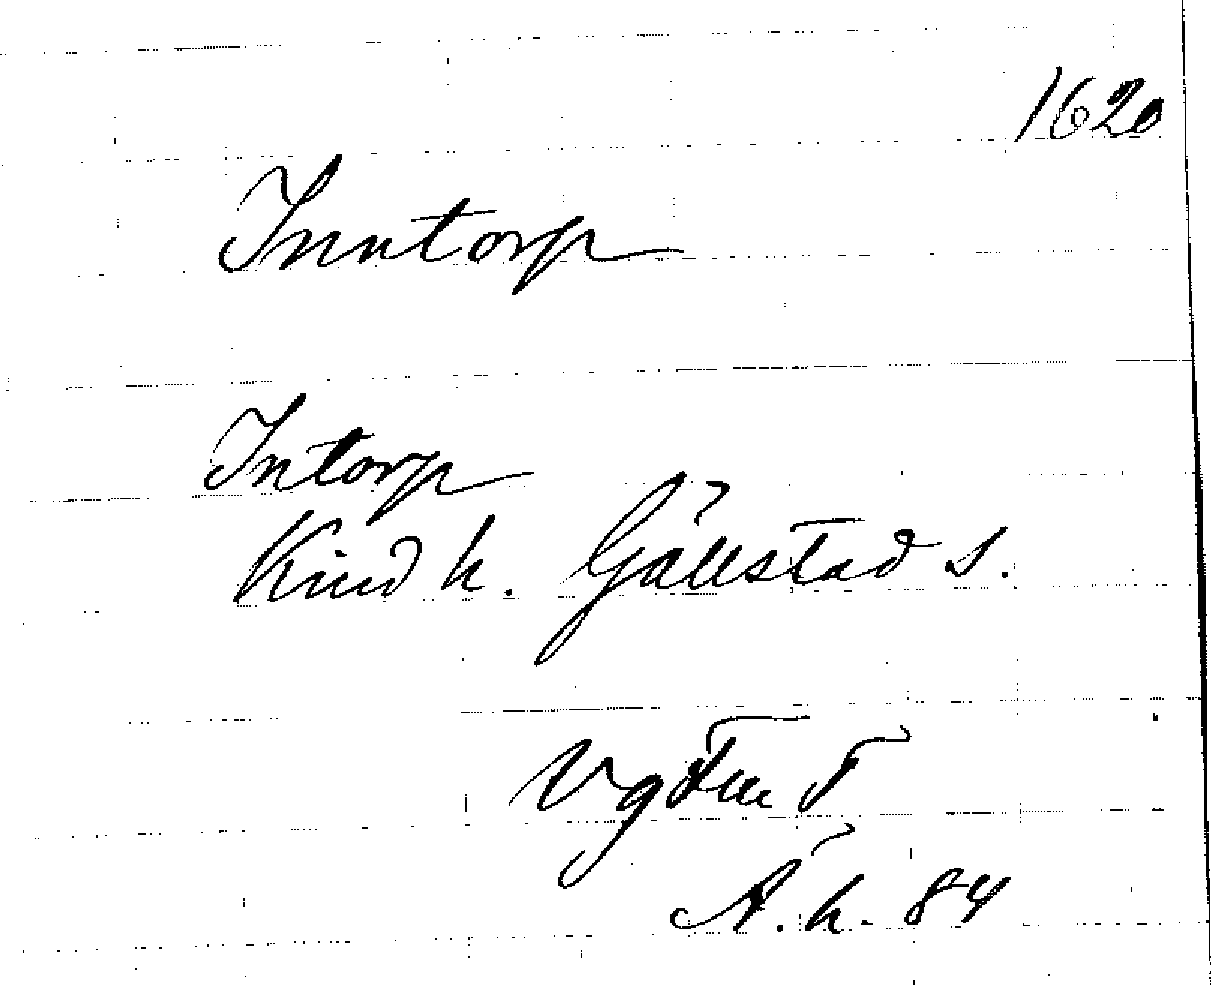 1620
Inntorp
Intorp
Kind h. Gällstad s.
Vg
Ä. h. 84